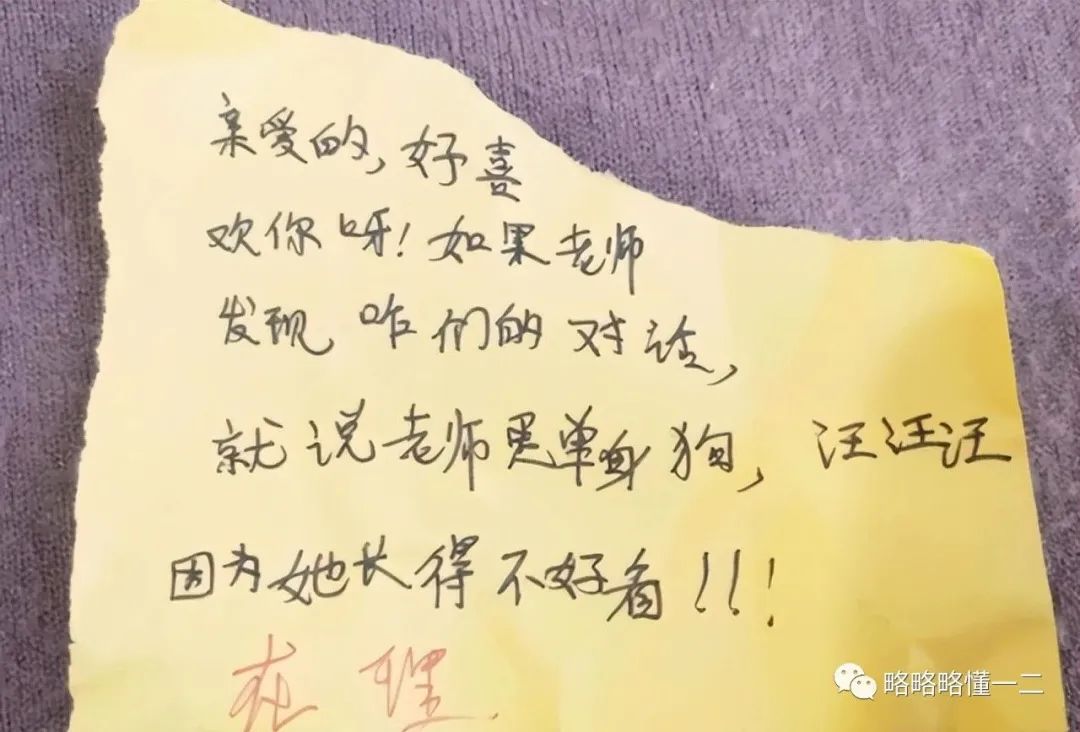 亲爱的,好喜
欢你呀!如果老师
发现咱们的对话,
就说老师是单身狗,汪汪汪
因为她长得不好看!!!
在理.
略略略懂一二